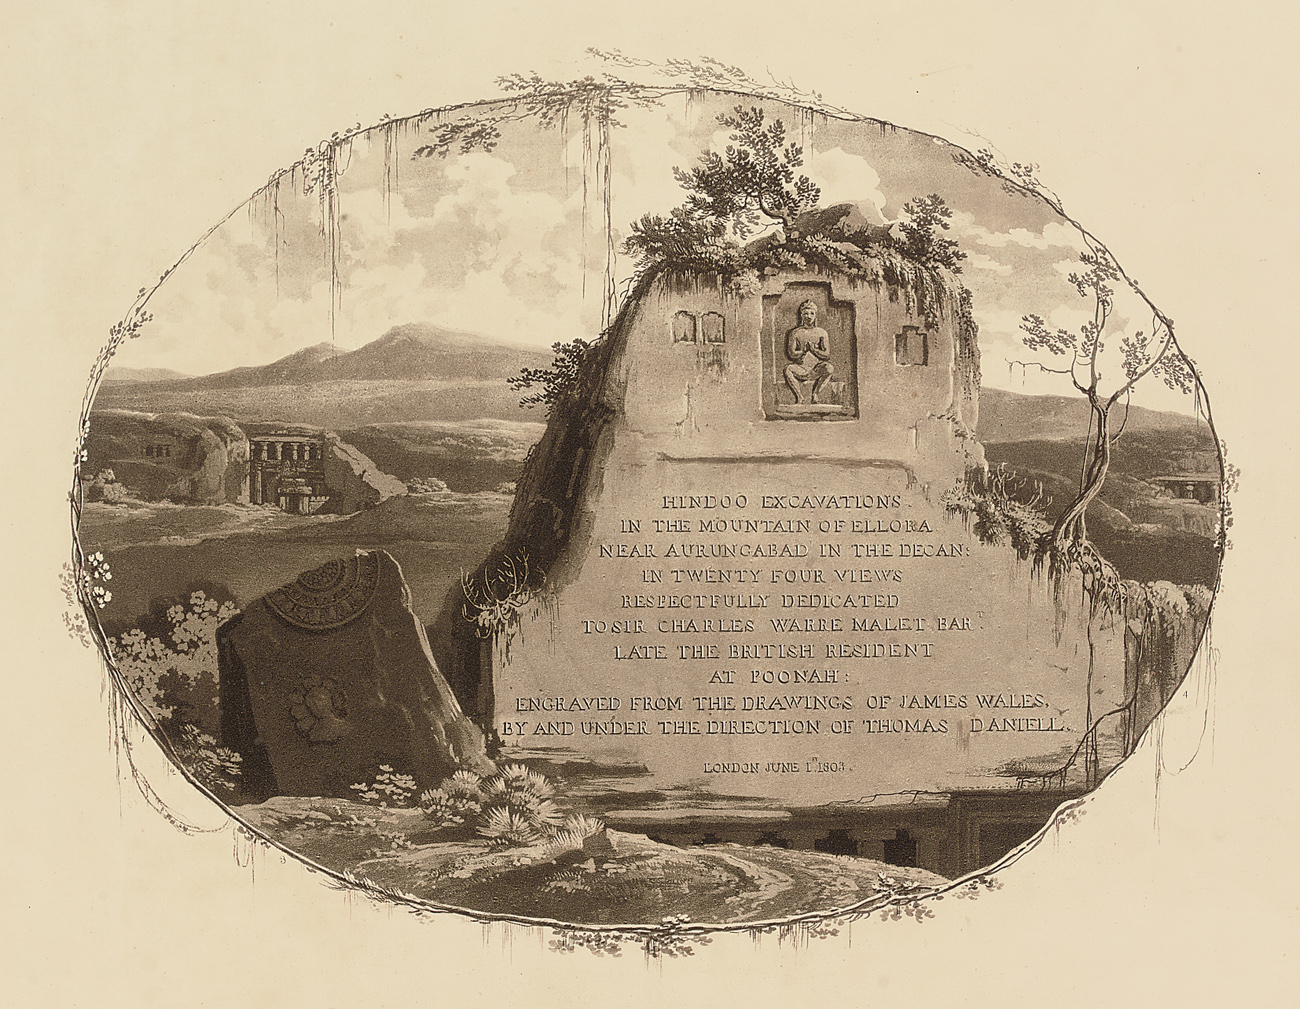 HINDOO EXCAVATIONS
IN THE MOUNTAIN OF ELLORA
NEAR AURUNGABAD IN THE DECAN:
IN TWENTY FOUR VIEWS
RESPECTFULLY DEDICATED
TO SIR CHARLES WARRE MALET BAR.T
LATE THE BRITISH RESIDENT
AT POONAH:
ENGRAVED FROM THE DRAWINGS OF JAMES WALES,
BY AND UNDER THE DIRECTION OF THOMAS DANIELL.
LONDON JUNE 1.st 1803.